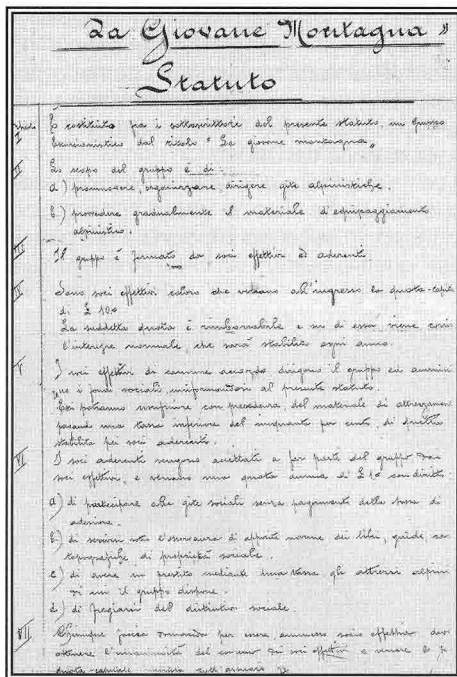 La Giovane Montagna »
Statuto
Articolo
I È costituito fra i sottoscrittori del presente statuto, un Gruppo
Escursionistico dal titolo " La giovane montagna „
II Lo scopo del gruppo è di:
a) promuovere, organizzare, dirigere gite alpinistiche.
b) provvedere gradualmente il materiale d'equipaggiamento
alpinistico.
III Il gruppo è formato da soci effettivi ed aderenti
IV Sono soci effettivi coloro che versano all'ingresso la quota-capitale
di £ 10.=
La suddetta quota è rimborsabile e su di essa viene corri
l'interesse normale, che sarà stabilito ogni anno.
V I soci effettivi di comune accordo dirigono il gruppo ed ammini
i fondi sociali, uniformandosi al presente statuto.
Essi potranno usufruire con precedenza del materiale di attrezzamento
pagando una tassa inferiore del cinquanta per cento, di quella
stabilita pei soci aderenti.
VI I soci aderenti vengono accettati a far parte del gruppo dai
soci effettivi, e versano una quota annua di £ con diritto:
a) di partecipare alle gite sociali senza pagamento della tassa di
adesione.
b) di servirsi sotto l'osservanza di apposite norme dei libri, guide, car
topografiche, di proprietà sociale.
c) di avere in prestito mediante tassa, gli attrezzi alpini
di cui il gruppo dispone.
d) di fregiarsi del distintivo sociale.
VII Chiunque faccia domanda per essere ammesso socio effettivo dov
ottenere l'unanimità dei soci effettivi e versare la
quota-capitale